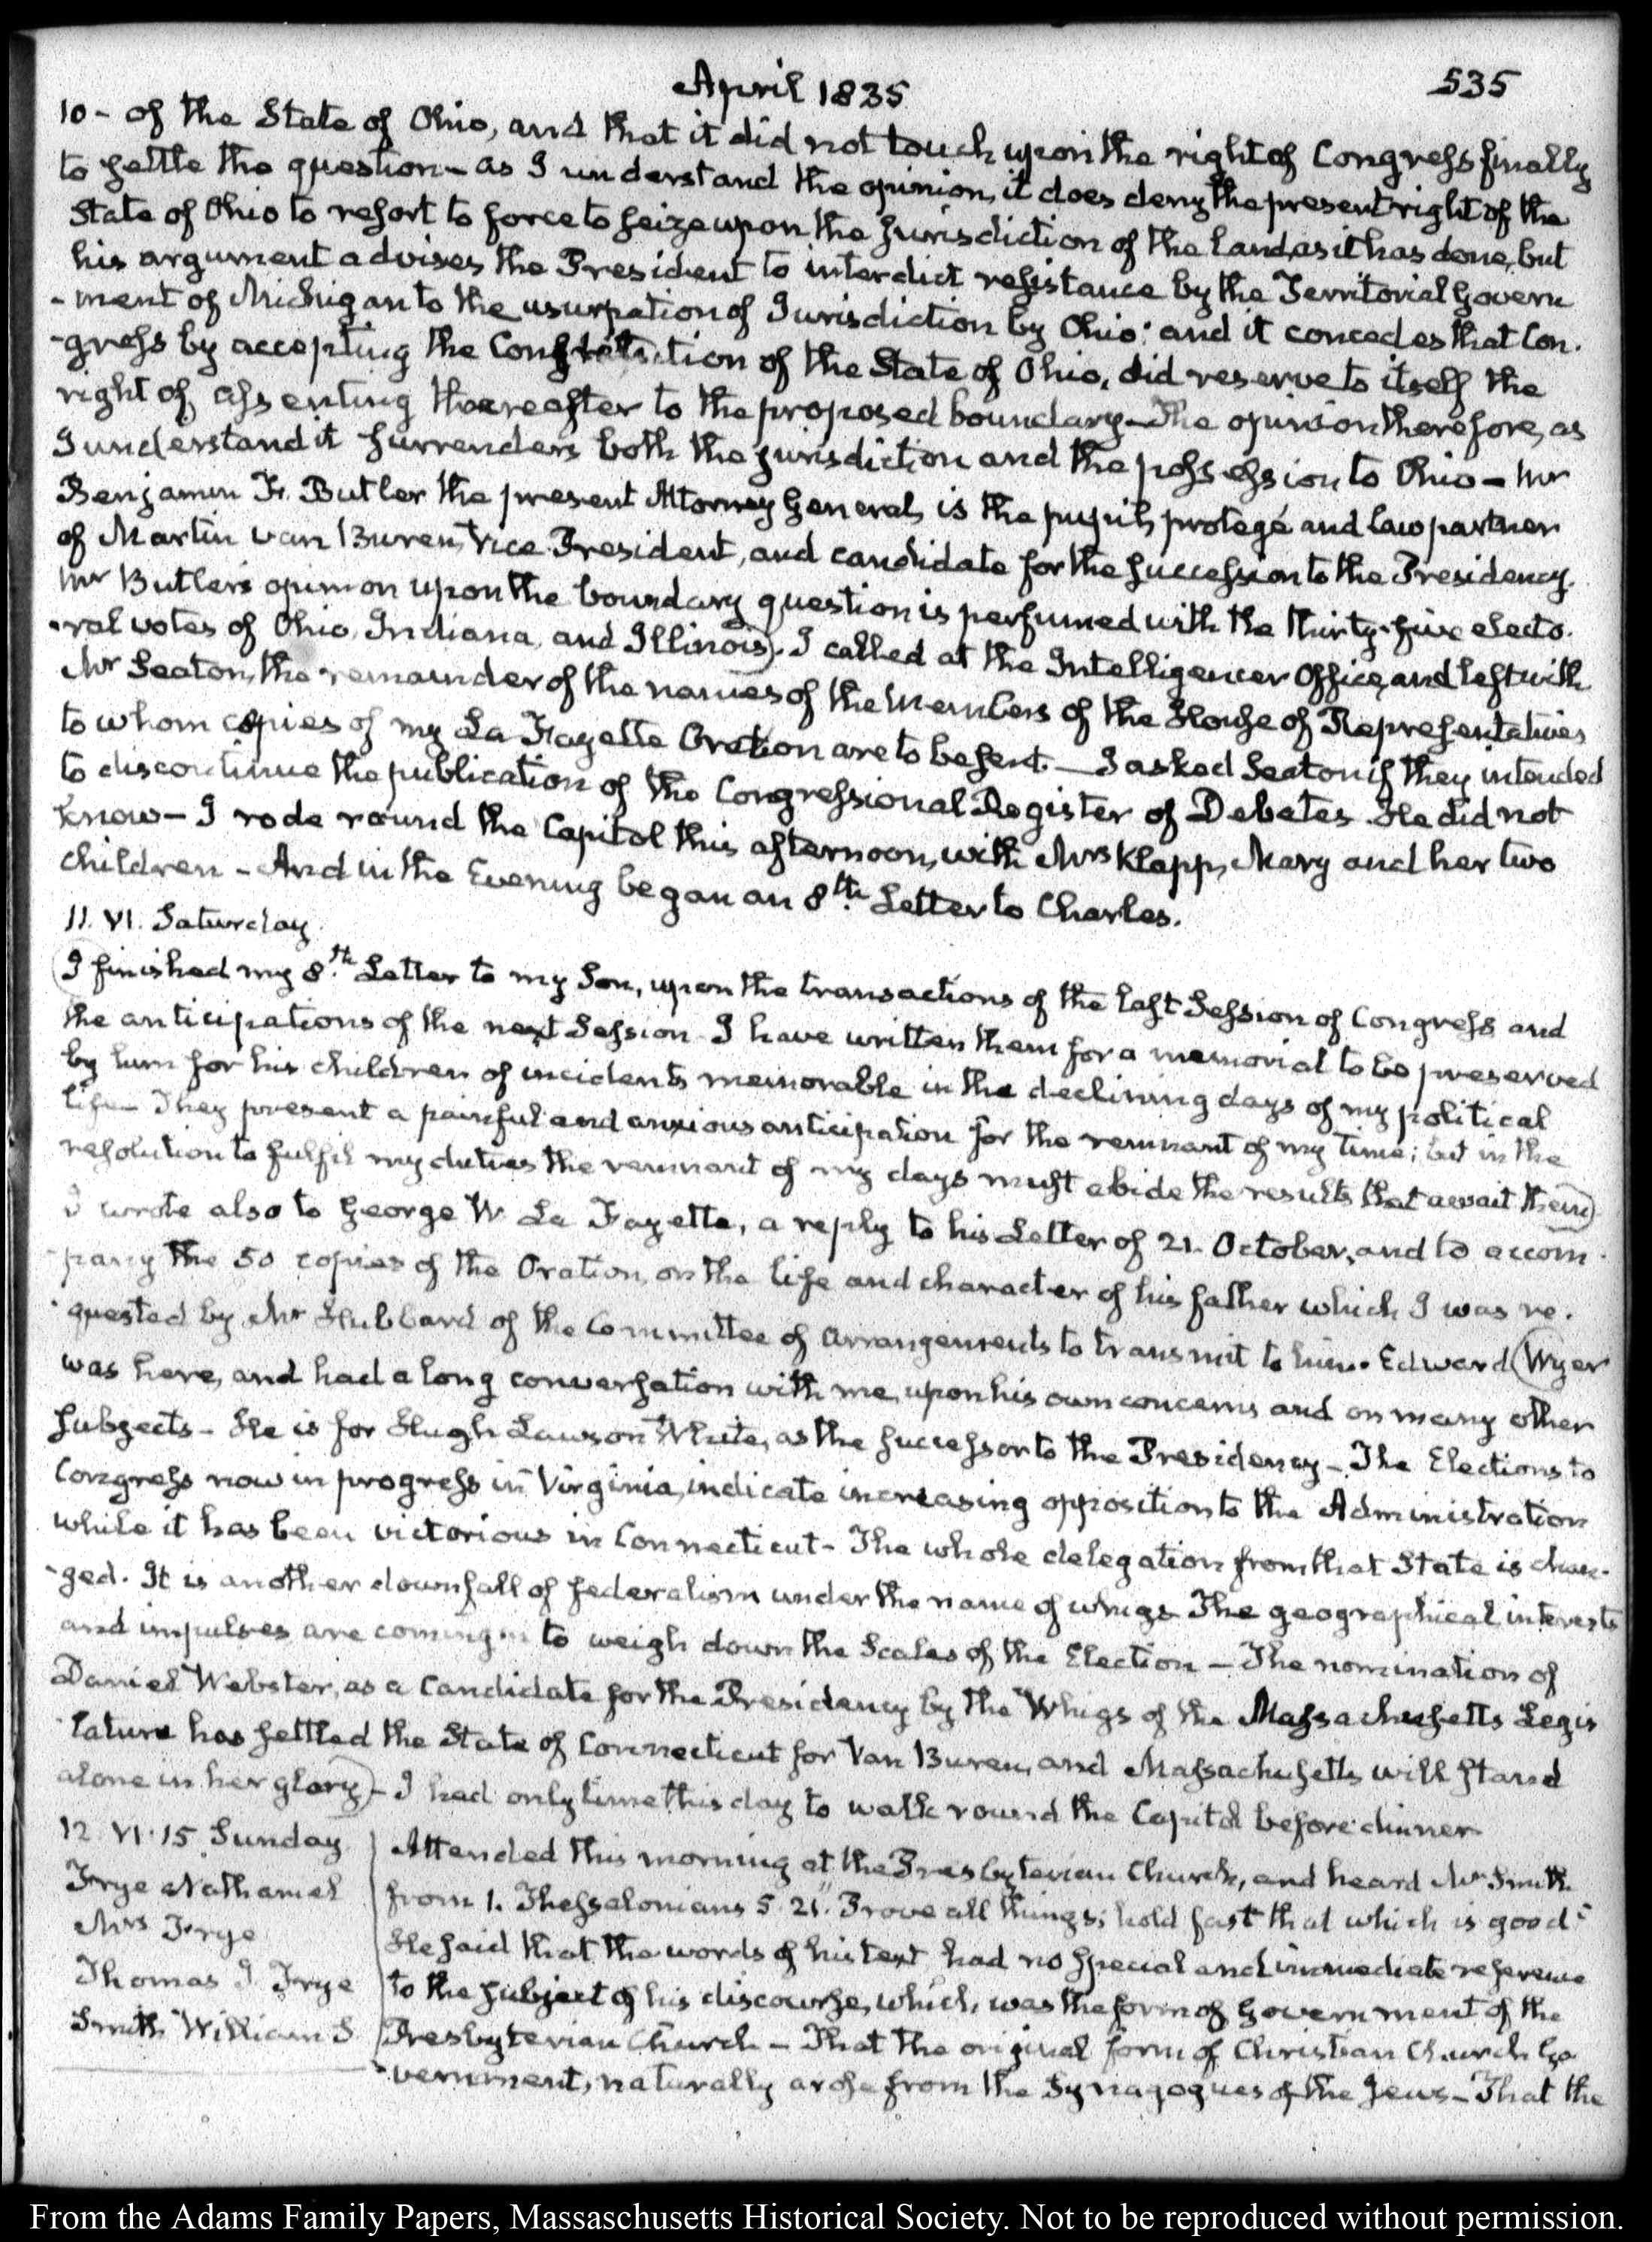 April 1835
535
10 - of the State of Ohio, and that it did not touch upon the right of Congress finally
to settle the question - as I understand the opinion, it does deny the present right of the
State of Ohio to resort to force to seize upon the Jurisdiction of the land, as it has done, but
his argument advises the President to interdict resistance by the Territorial Govern
-ment of Michigan to the usurpation of Jurisdiction by Ohio: and it concedes that Con-
-gress by accepting the Constitution of the State of Ohio, did reserve to itself the
right of assenting thereafter to the proposed boundary - The opinion therefore, as
I understand it surrenders both the jurisdiction and the possession to Ohio - Mr
Benjamin F. Butler the present Attorney General, is the pupil, protegé and law partner
of Martin van Buren, Vice-President, and candidate for the succession to the Presidency.
Mr Butler's opinion upon the boundary question is perfumed with the thirty-five electo-
-ral votes of Ohio, Indiana, and Illinois). I called at the Intelligencer Office, and left with
Mr Seaton, the remainder of the names of the Members of the House of Representatives
to whom copies of my La Fayette Oration are to be sent. — I asked Seaton if they intended
to discontinue the publication of the Congressional Register of Debates. He did not
know - I rode round the Capitol this afternoon, with Mrs Klapp, Mary and her two
children - And in the Evening began an 8th Letter to Charles.
11. VI. Saturday.
I finished my 8th Letter to my Son, upon the transactions of the last Session of Congress and
the anticipations of the next Session. I have written them for a memorial to be preserved
by him for his children of incidents memorable in the declining days of my political
life - They present a painful and anxious anticipation for the remnant of my time; but in the
resolution to fulfil my duties the remnant of my days must abide the results that await them)
I wrote also to George W. La Fayette, a reply to his Letter of 21. October, and to accom-
-pany the 50 copies of the Oration, on the life and character of his father which I was re-
-quested by Mr Hubbard of the Committee of arrangements to transmit to him. Edward (Wyer
was here, and had a long conversation with me, upon his own concerns and on many other
subjects - He is for Hugh Lawson White, as the successor to the Presidency - The Elections to
Congress now in progress in Virginia, indicate increasing opposition to the Administration
while it has been victorious in Connecticut - The whole delegation from that State is chan-
-ged. It is another downfall of federalism under the name of whigs. The geographical interests
and impulses are coming in to weigh down the Scales of the Election - The nomination of
Daniel Webster, as a Candidate for the Presidency by the Whigs of the Massachusetts Legis
-lature has settled the State of Connecticut for Van Buren, and Massachusetts will stand
alone in her glory) - I had only time this day to walk round the Capitol before dinner
12. VI. 15. Sunday.
Frye Nathaniel
Mrs Frye
Thomas J. Frye
Smith William S
Attended this morning at the Presbyterian Church, and heard Mr Smith
from 1. Thessalonians 5. 21. "Prove all things; hold fast that which is good"
He said that the words of his text had no special and immediate reference
to the subject of his discourse, which was the form of Government of the
Presbyterian Church - That the original form of Christian Church Go
-vernment, naturally arose from the Synagogues of the Jews - That the
From the Adams Family Papers, Massaschusetts Historical Society. Not to be reproduced without permission.